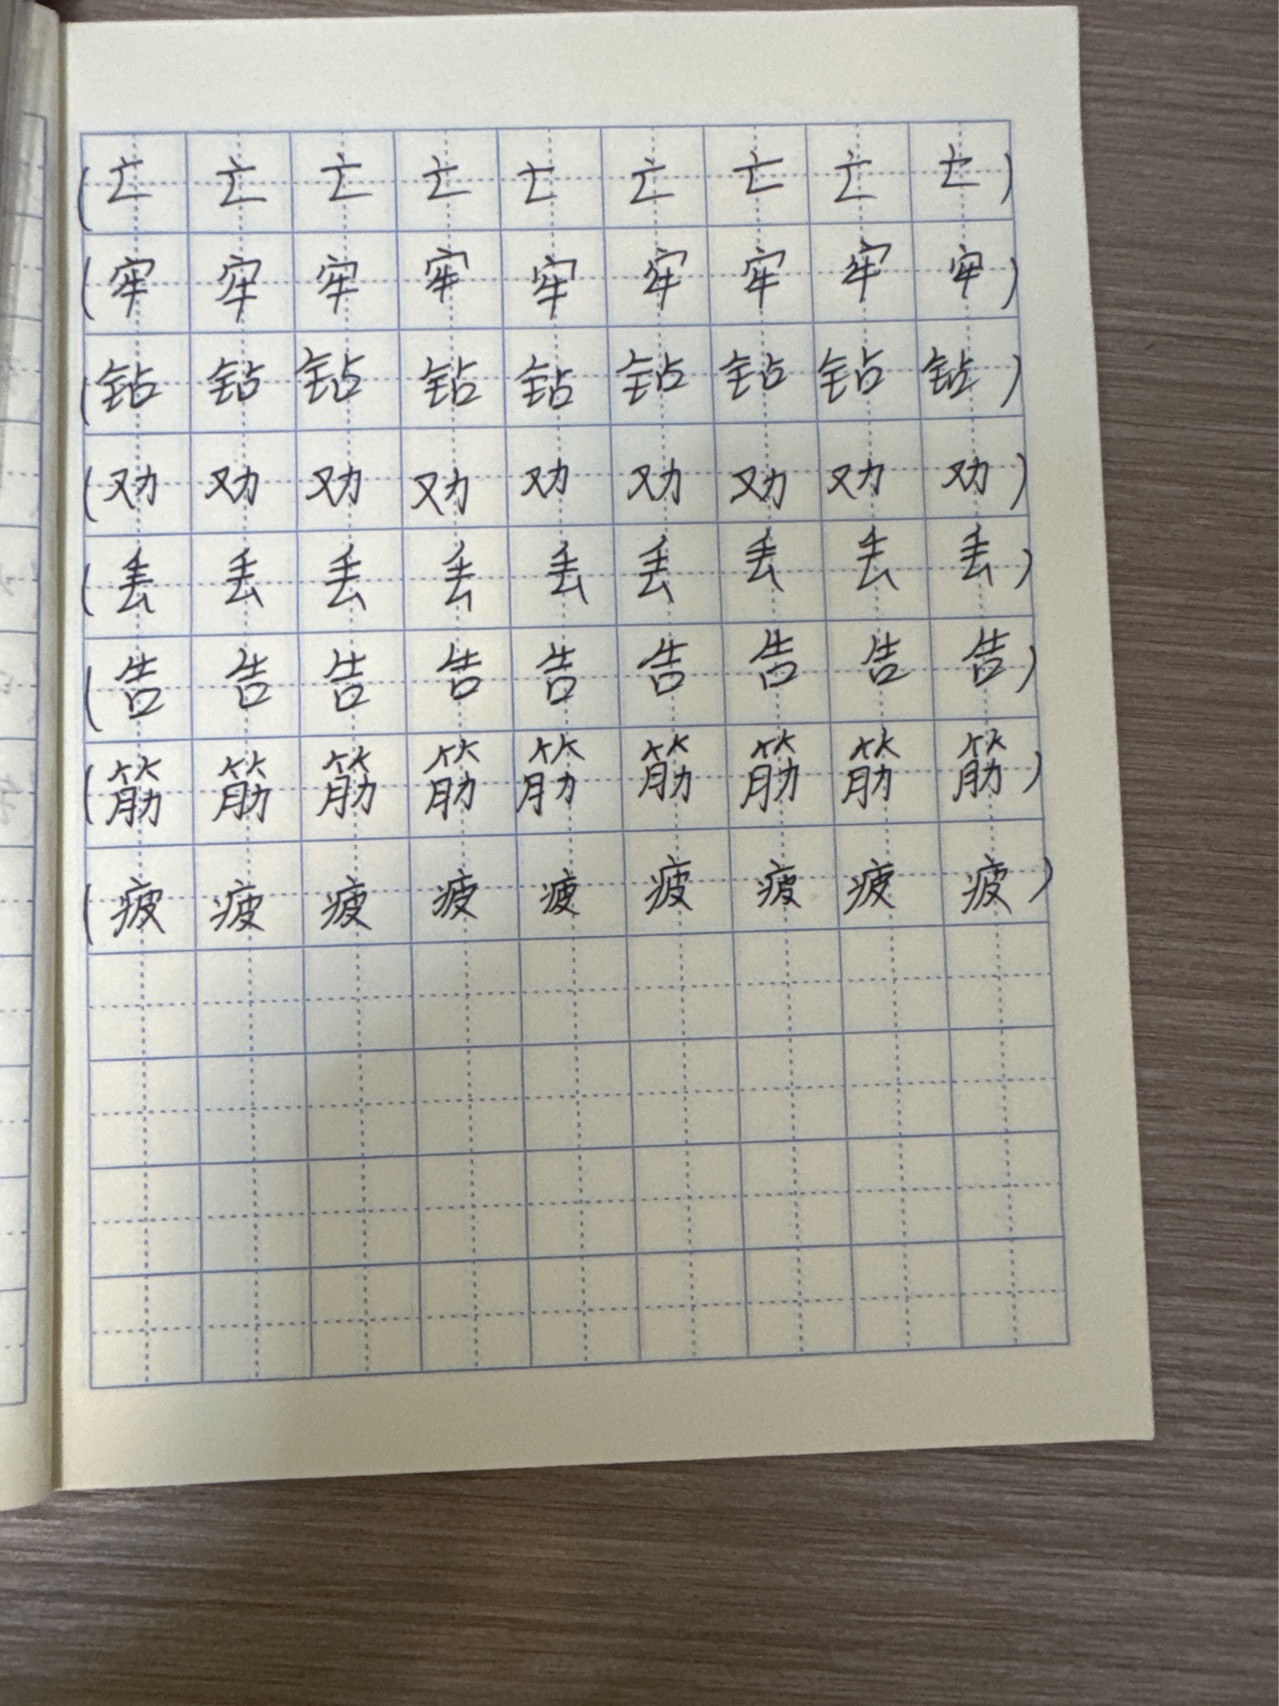 (亡亡亡亡亡亡亡亡亡)
(牢牢牢牢牢牢牢牢牢)
(钻钻钻钻钻钻钻钻钻)
(劝劝劝劝劝劝劝劝劝)
(丢丢丢丢丢丢丢丢丢)
(告告告告告告告告告)
(筋筋筋筋筋筋筋筋筋)
(疲疲疲疲疲疲疲疲疲)